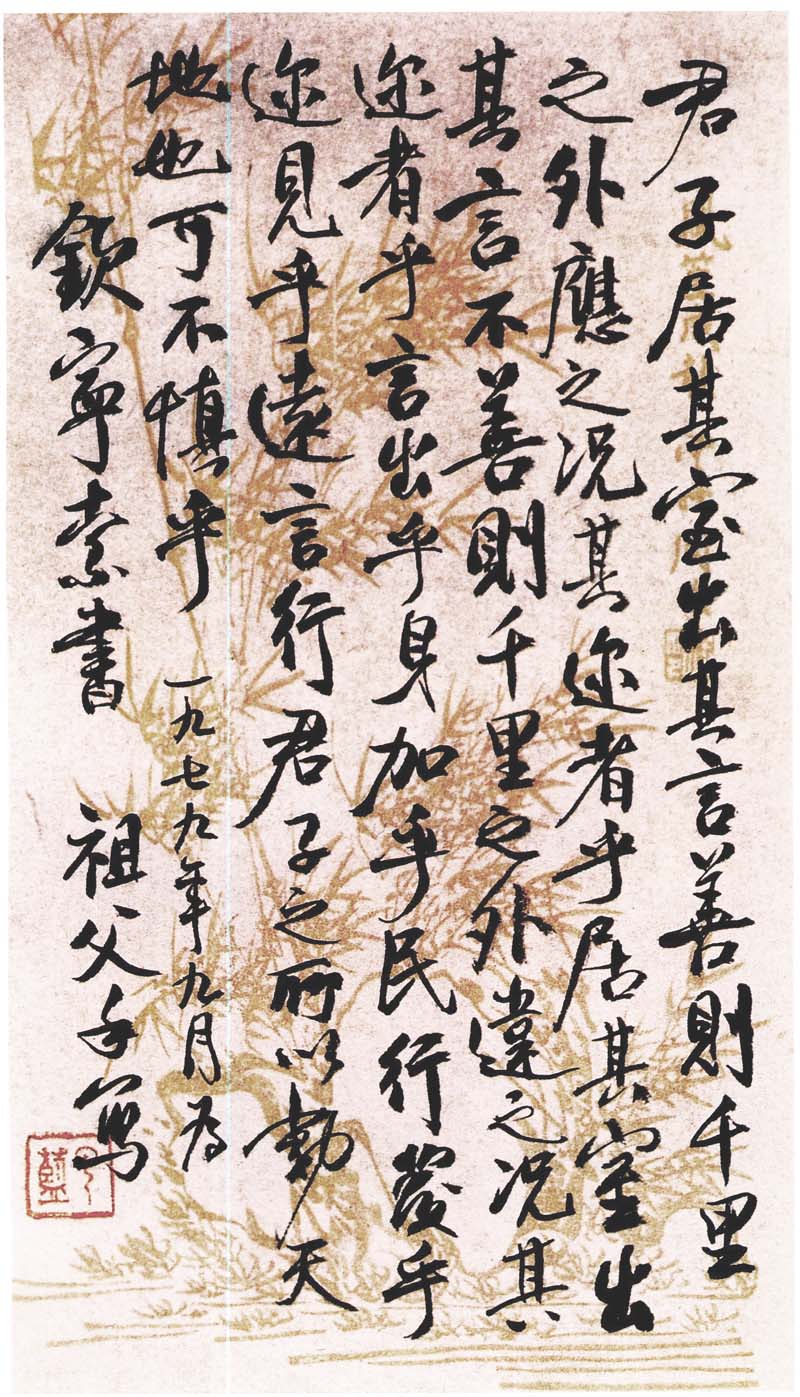 君子居其室出其言善則千里
之外應之況其迩者乎居其室出
其言不善則千里之外違之況其
迩者乎言出乎身加乎民行發乎
迩見乎遠言行君子之所以動天
地也可不慎乎 一九七九年九月為
欽寧索書 祖父手寫